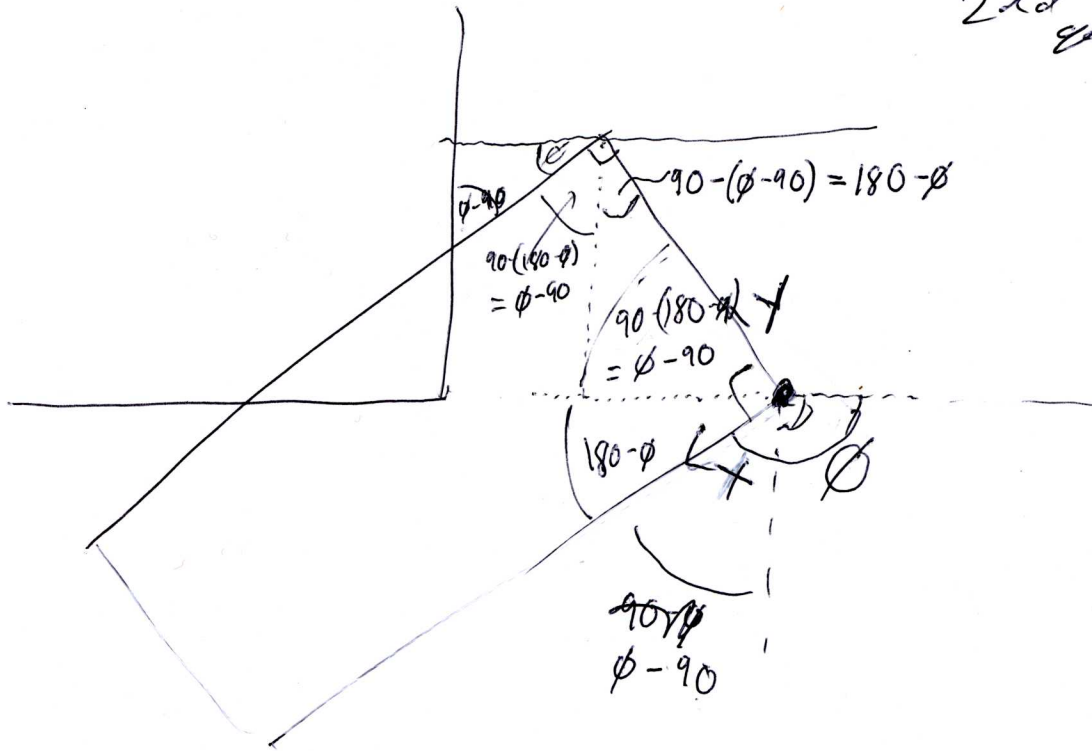 2nd
90-(ϕ-90) = 180-ϕ
ϕ-90
90-(180-ϕ)
= ϕ-90
90-(180-ϕ) Y
= ϕ-90
180-ϕ
X
ϕ
ϕ-90